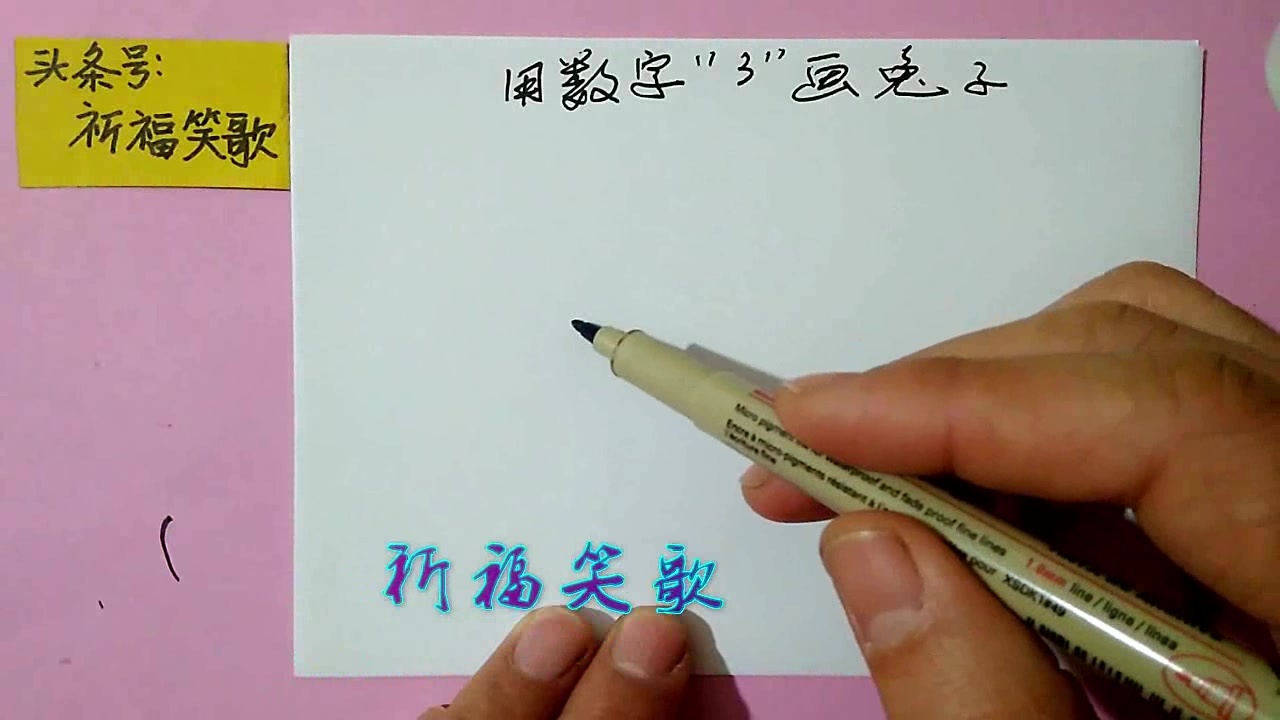 头条号:
祈福笑歌
用数字"3"画兔子
祈福笑歌
Micro pigment
Encre à micro-pigments résistant à l'
l'écriture fine
waterproof and fade proof fine lines
1.0mm line / ligne / línea
pour XSDK1#49